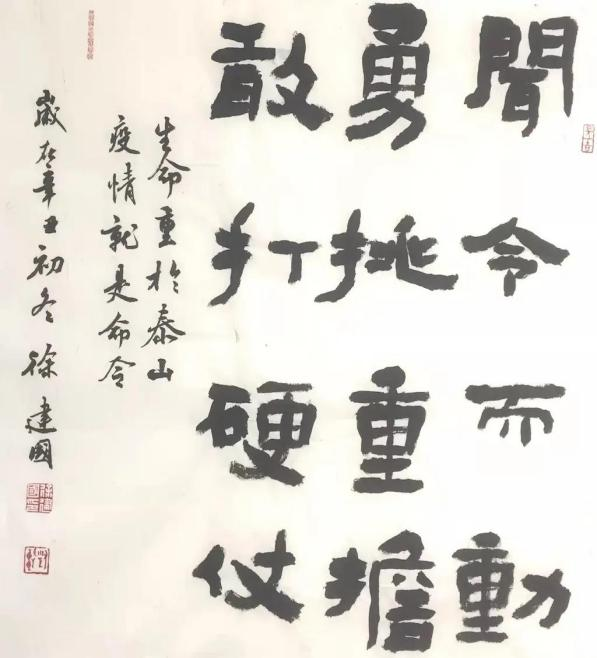 聞令而動
勇挑重擔
敢打硬仗
生命重於泰山
疫情就是命令
歲在辛丑初冬徐建國